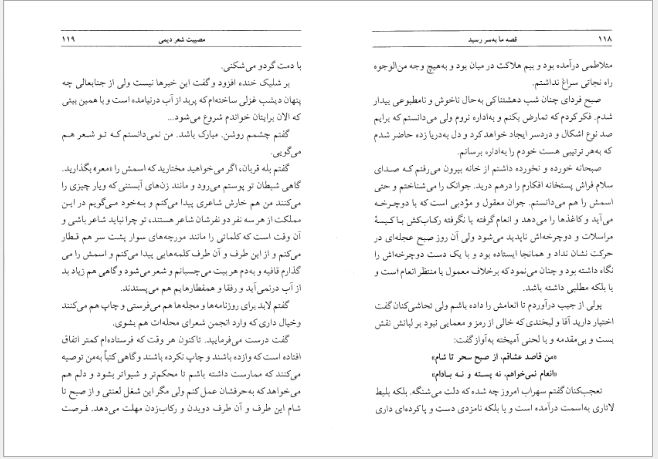 ۱۱۸ قصه ما به‌سر رسید
متلاطمی درآمده بود و بیم هلاکت در میان بود و به‌هیچ وجه من‌الوجوه
راه نجاتی سراغ نداشتم.
صبح فردای چنان شب دهشتناکی به‌حال ناخوش و نامطبوعی بیدار
شدم. فکر کردم که تمارض بکنم و به‌اداره نروم ولی می‌دانستم که برایم
صد نوع اشکال و دردسر ایجاد خواهد کرد و دل به‌دریا زده حاضر شدم
که به‌هر ترتیبی هست خودم را به‌اداره برسانم.
صبحانه خورده و نخورده داشتم از خانه بیرون می‌رفتم که صدای
سلام فراش پستخانه افکارم را درهم درید. جوانک را می‌شناختم و حتی
اسمش را هم می‌دانستم. جوان معقول و مؤدبی است که با دوچرخه
می‌آید و کاغذها را می‌دهد و انعام گرفته یا نگرفته رکاب‌کش با کیسهٔ
مراسلات و دوچرخه‌اش ناپدید می‌شود ولی آن روز صبح عجله‌ای در
حرکت نشان نداد و همانجا ایستاده بود و با یک دست دوچرخه‌اش را
نگاه داشته بود و چنان می‌نمود که برخلاف معمول یا منتظر انعام است و
یا بلکه مطلبی داشته باشد.
پولی از جیب درآوردم تا انعامش را داده باشم ولی تحاشی‌کنان گفت
اختیار دارید آقا و لبخندی که خالی از رمز و معمایی نبود بر لبانش نقش
بست و بی‌مقدمه و با لحنی آمیخته به‌آواز گفت:
«من قاصد عشاقم، از صبح سحر تا شام»
«انعام نمی‌خواهم، نه پسته و نه بادام»
تعجب‌کنان گفتم سهراب امروز چه شده که دلت می‌شنگد. بلکه بلیط
لاتاری به‌اسمت درآمده است و یا بلکه نامزدی دست و پا کرده‌ای داری
مصیبت شعر دیمی ۱۱۹
با دمت گردو می‌شکنی.
بر شلیک خنده افزود و گفت این خبرها نیست ولی از جنابعالی چه
پنهان دیشب غزلی ساخته‌ام که پر بد از آب درنیامده است و با همین بیتی
که الان برایتان خواندم شروع می‌شود...
گفتم چشمم روشن. مبارک باشد. من نمی‌دانستم که تو شعر هم
می‌گویی.
گفتم بله قربان، اگر می‌خواهید مختارید که اسمش را «معر» بگذارید.
گاهی شیطان تو پوستم می‌رود و مانند زن‌های آبستنی که ویار چیزی را
می‌کنند من هم خارش شاعری پیدا می‌کنم و به‌خود می‌گویم در این
مملکت از هر سه نفر دو نفرشان شاعر هستند، تو چرا نباید شاعر باشی و
آن وقت است که کلماتی را مانند مورچه‌های سوار پشت سر هم قطار
می‌کنم و از این طرف و آن طرف کلمه‌هایی پیدا می‌کنم و اسمش را می
گذارم قافیه و به‌دم هر بیت می‌چسبانم و شعر می‌شود و گاهی هم زیاد بد
از آب درنمی‌آید و رفقا و همقطارهایم هم می‌پسندند.
گفتم لابد برای روزنامه‌ها و مجله‌ها هم می‌فرستی و چاپ هم می‌کنند
و خیال داری که وارد انجمن شعرای محله‌ات هم بشوی.
گفت درست می‌فرمایید. تاکنون هر وقت که فرستاده‌ام کمتر اتفاق
افتاده است که وازده باشند و چاپ نکرده باشند و گاهی کتباً به‌من توصیه
می‌کنند که ممارست داشته باشم تا محکم‌تر و شیواتر بشود و دلم هم
می‌خواهد که به‌حرفشان عمل کنم ولی مگر این شغل لعنتی و از صبح تا
شام این طرف و آن طرف دویدن و رکاب‌زدن مهلت می‌دهد. فرصت